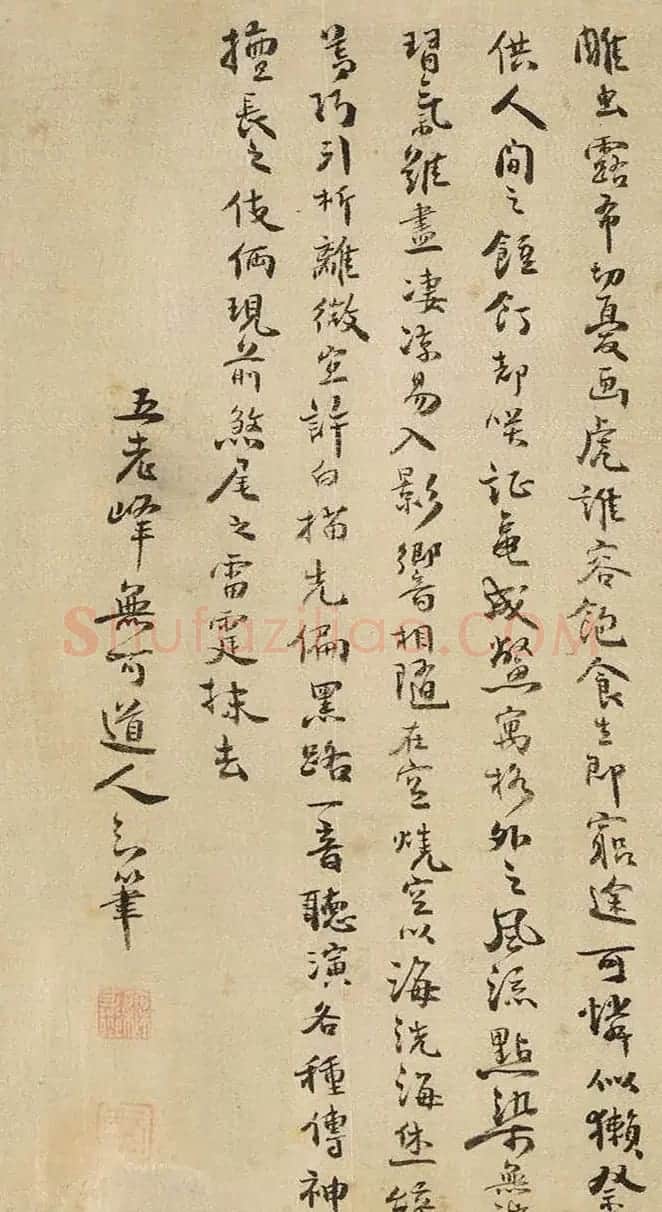 雕虫露布切憂画虎誰容飽食生即窮途可憐似獺祭
供人間之餖飣却咲証龜成鱉寓格外之風流點染無
習氣難盡凄凉易入影響相隨在空燒空以海洗海
引析離微空許白描先偏黑路一音聽演各種傳神
擅長之伎倆現前煞尾之雷霆抹去
五老峰無可道人筆
Shufaziliao.COM